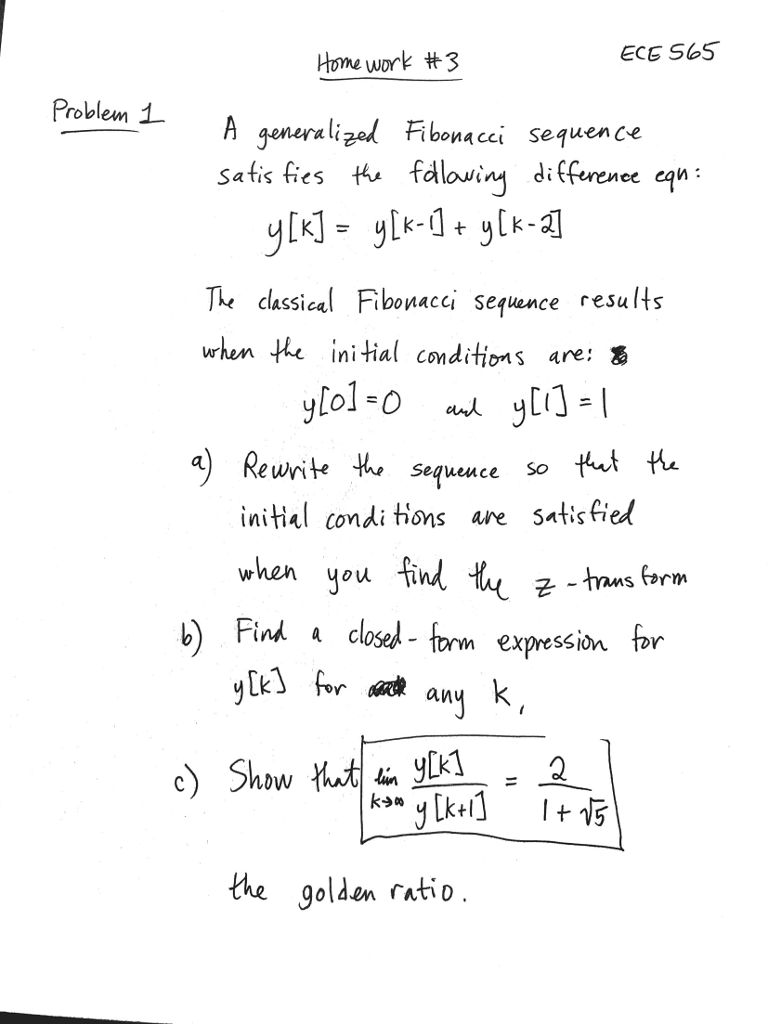 Homework #3
ECE 565
Problem 1
A generalized Fibonacci sequence
satisfies the following difference eqn:
y[k] = y[k-1] + y[k-2]
The classical Fibonacci sequence results
when the initial conditions are:
y[0]=0 and y[1]=1
a) Rewrite the sequence so that the
initial conditions are satisfied
when you find the z-transform
b) Find a closed-form expression for
y[k] for any k,
c) Show that lim k→∞ y[k] / y[k+1] = 2 / 1+√5
the golden ratio.